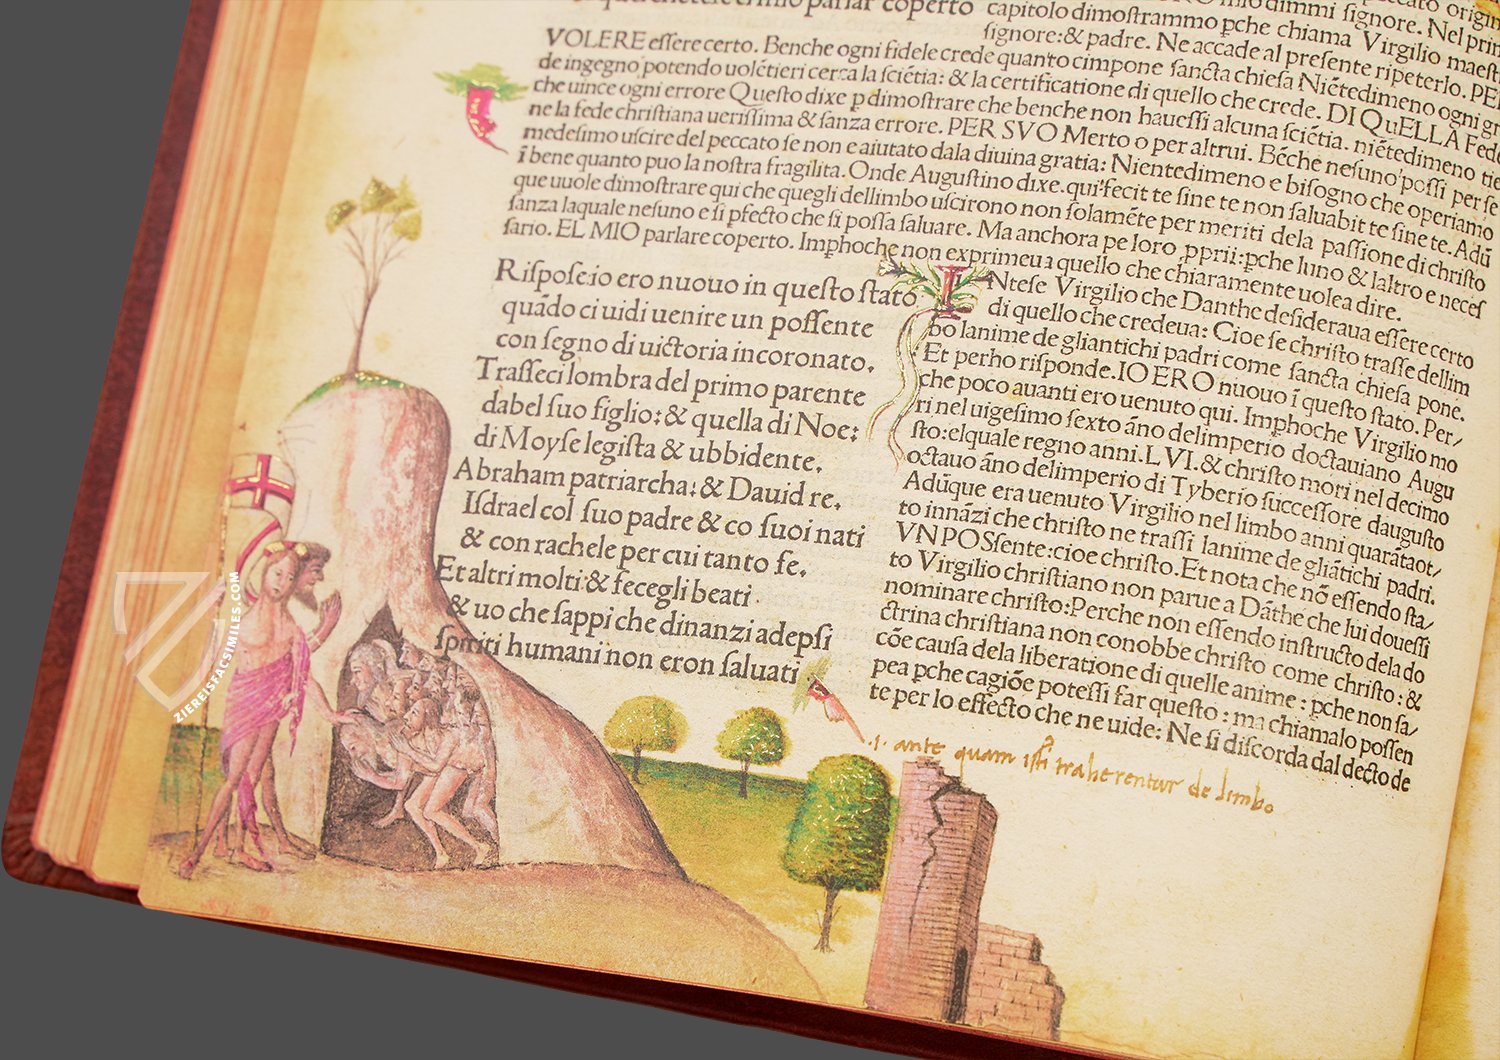 parlar coperto
VOLERE eſſere certo. Benche ogni fidele crede quanto cimpone ſancta chieſa Niētedimeno ogni
de ingegno potendo uolētieri cerca la ſciētia: & la certificatione di quello che crede. DI QuELLA Fede
che uince ogni errore Queſto dixe p dimoſtrare che benche non haueſſi alcuna ſciētia. niētedimeno
ne la fede chriſtiana ueriſſima & ſanza errore. PER SVO Merto o per altrui. Bēche neſuno poſſi per ſe
medeſimo uſcire del peccato ſe non e aiutato dala diuina gratia: Nientedimeno e biſogno che operiamo
ī bene quanto puo la noſtra fragilita. Onde Auguſtino dixe. qui fecit te ſine te non ſaluabit te ſine te. Adū
que uuole dimoſtrare qui che quegli dellimbo uſcirono non ſolamēte per meriti dela paſſione di chriſto
ſanza laquale neſuno e ſi pfecto che ſi poſſa ſaluare. Ma anchora pe loro pprii: pche luno & laltro e neceſ
ſario. EL MIO parlare coperto. Imphoche non exprimeua quello che chiaramente uolea dire.
capitolo dimoſtrammo pche chiama Virgilio maeſt
ſignore: & padre. Ne accade al preſente ripeterlo. PER
Riſpoſe: io ero nuouo in queſto ſtato
quādo ci uidi uenire un poſſente
con ſegno di uictoria incoronato.
Traſſeci lombra del primo parente
dabel ſuo figlio: & quella di Noe:
di Moyſe legiſta & ubbidente.
Abraham patriarcha: & Dauid re.
Iſdrael col ſuo padre & co ſuoi nati
& con rachele per cui tanto fe.
Et altri molti: & fecegli beati
& uo che ſappi che dinanzi adeſſi
ſpiriti humani non eron ſaluati
INteſe Virgilio che Danthe deſideraua eſſere certo
di quello che credeua: Cioe ſe chriſto traſſe dellim
bo lanime de gliantichi padri come ſancta chieſa pone.
Et perho riſponde. IO ERO nuouo ī queſto ſtato. Per/
che poco auanti ero uenuto qui. Imphoche Virgilio mo
ri nel uigeſimo ſexto āno delimperio doctauiano Augu
ſto: elquale regno anni. LVI. & chriſto mori nel decimo
octauo āno delimperio di Tyberio ſucceſſore dauguſto
Adūque era uenuto Virgilio nel limbo anni quarātaot/
to innāzi che chriſto ne traſſi lanime de gliātichi padri.
VN POSſente: cioe chriſto. Et nota che nō eſſendo ſta/
to Virgilio chriſtiano non parue a Dāthe che lui doueſſi
nominare chriſto: Perche non eſſendo inſtructo dela do
ctrina chriſtiana non conobbe chriſto come chriſto: &
cōe cauſa dela liberatione di quelle anime: pche non ſa/
pea pche cagiōe poteſſi far queſto: ma chiamalo poſſen
te per lo effecto che ne uide: Ne ſi diſcorda dal decto de
.i. ante quam iſti traherentur de limbo
ZIEREISFACSIMILES.COM